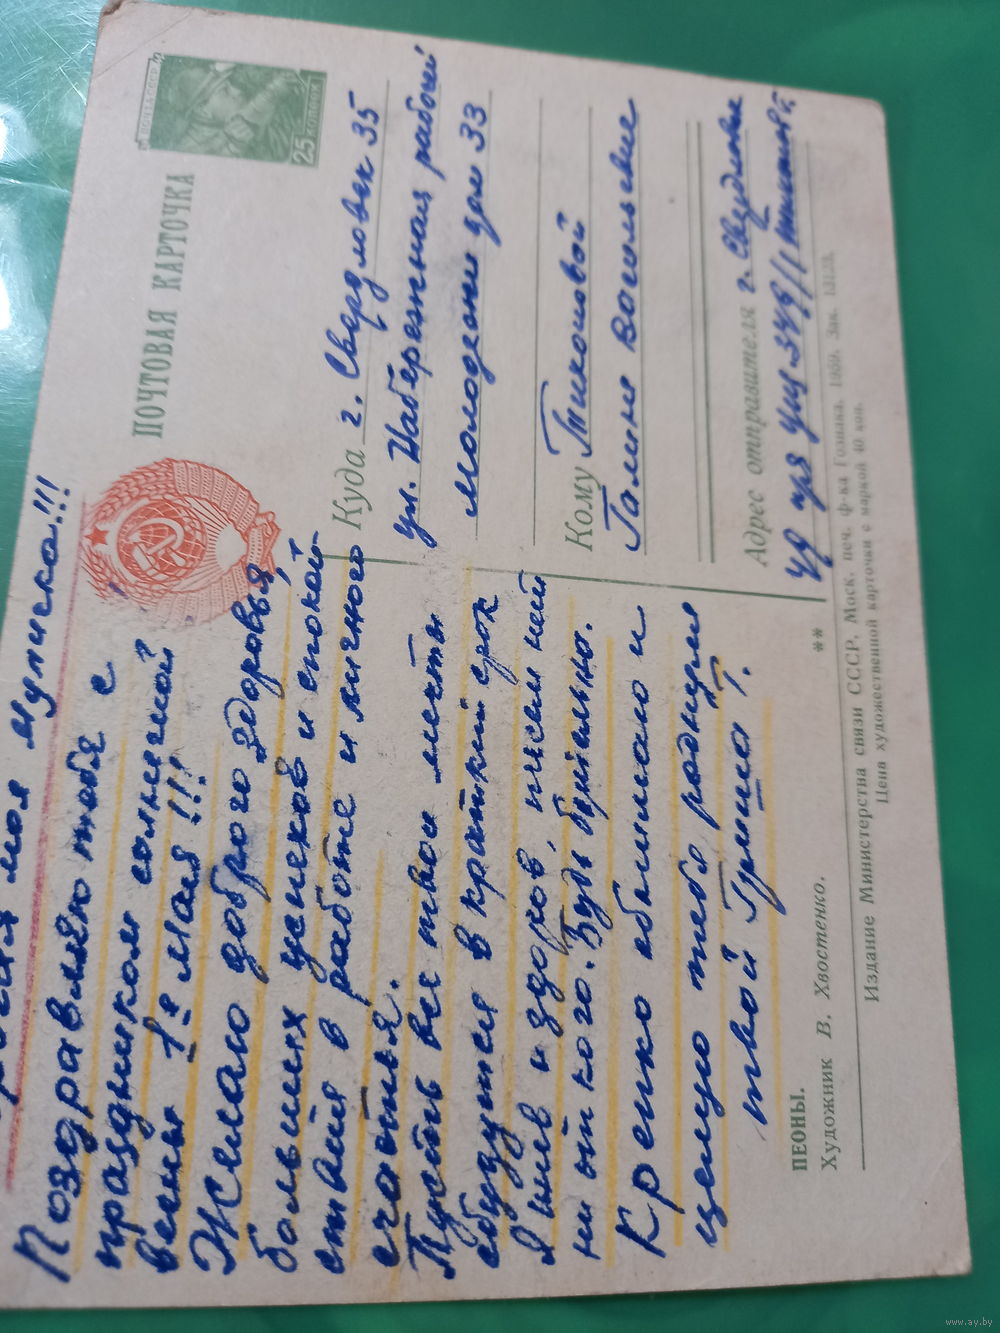 моя Муличка!!!
Поздравляю тебя с
праздником солнечной
весны 1е Мая!!!
Желаю доброго здоровья,
больших успехов и
в работе и личного
счастья.
Пусть все твои мечты
сбудутся в краткий срок
Я жив и здоров, писем нет
ни от кого. Будь бдительно.
Крепко обнимаю и
целую тебя родную
твой Гриша Т.
ПЕОНЫ.
Художник В. Хвостенко.
**
ПОЧТОВАЯ КАРТОЧКА
ПОЧТА СССР
25 КОПЕЕК
Куда г. Свердловск 35
ул. Набережная рабочей
молодежи дом 33
Кому Тихоновой
Галине Васильевне
Адрес отправителя г. Свердловск
Издание Министерства связи СССР. Моск. печ. ф-ка Гознака. 1959. Зак.
Цена художественной карточки с маркой 40 коп.
www.ay.by